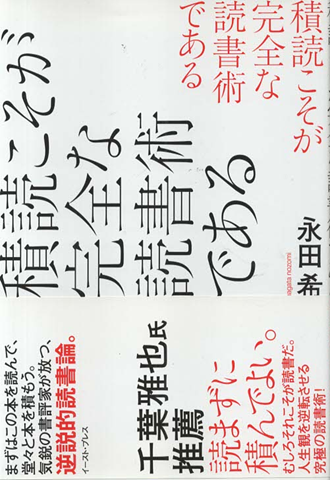 積読こそが
完全な
読書術
である
積読こそが
完全な
読書術
である
永田希
agata nozomi
読まずに
積んでよい。
むしろそれこそが読書だ。
人生観を逆転させる
究極の読書術!
千葉雅也氏
推薦
逆説的読書論。
気鋭の書評家が放つ、
堂々と本を積もう。
まずはこの本を読んで、
イースト・プレス